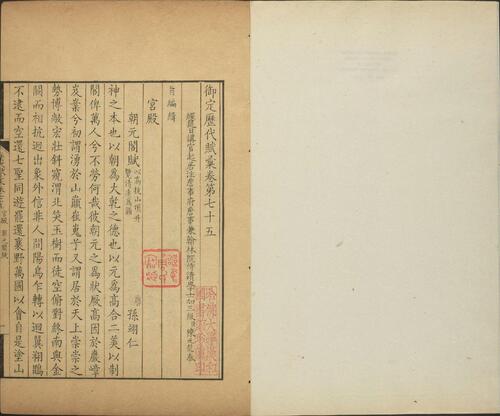 御定歷代賦彙卷第七十五
經筵日講官起居注詹事府詹事兼翰林院侍讀學士加三級臣陳元龍奉
旨編緝
宮殿
朝元閣賦以高敞山頂井
孫翊仁
神之本也以朝為大乾之德也以元為高合二美以制
閣俾萬人兮不勞何哉彼朝元之為狀厥高因於巖嶂
岌業兮初謂湧於山巔崔嵬乎又謂居於天上崇崇之
勢博敞宏壯斜窺渭北笑玉樹而徒空俯對終南與金
闕而相抗迥出象外信非人間陽烏乍轉以迴翼翔鶤
不逮而空還七聖同遊罷還襄野萬國以會自是塗山